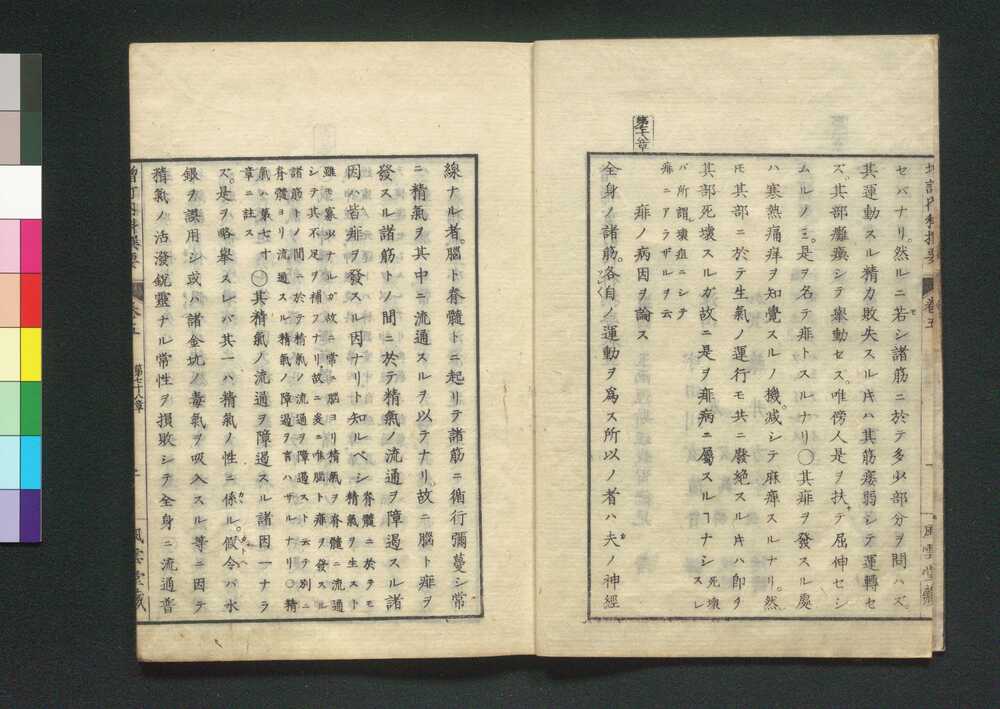 増訂内科撰要 卷五 一 風雲堂藏
セバナリ。然ルニ若シ諸筋ニ於テ多少部分ヲ問ハズ
其運動スル精力敗失スルキハ其筋痿弱シテ運轉セ
ズ。其部癱瘓シテ舉動セス。唯傍人是ヲ扶テ屈伸セシ
ムルノミ。是ヲ名テ痱トスルナリ〇其痱ヲ發スル處
ハ寒熱痛痒ヲ知覺スルノ機。減シテ麻痺スルナリ。然
モ其部ニ於テ生氣ノ運行モ共ニ廢絶スルキハ即ヲ
其部死壊スルガ故ニ是ヲ痱病ニ屬スルヿナシ
死壊スレ
バ所謂壊疽ニシテ
痱ニアラザルヲ云
第七十八章
痱ノ病因ヲ論ス
全身ノ諸筋。各自ノ運動ヲ爲ス所以ノ者ハ夫ノ神經
線ナル者。腦ト脊髓トニ起リテ諸筋ニ循行彌蔓シ常
ニ精氣ヲ其中ニ流通スルヲ以テナリ。故ニ腦ト痱ヲ
發スル諸筋トノ間ニ於テ精氣ノ流通ヲ障遏スル諸
因ハ皆痱ヲ發スル因ナリト知ルベシ
脊髓ニ於テモ
精氣ヲ生スト
雖モ寡少ナルガ故ニ常ニ腦ヨリ精氣ヲ脊髓ニ流通
シテ其不足ヲ補フナリ故ニ爰ニ唯腦ト痱ヲ發スル
諸筋トノ間ニ於テ精氣ノ流通ヲ障遏スト云テ別ニ
脊髓ヨリ流通スル精氣ノ障遏ヲ言ハザルナリ〇精
氣ハ第七十
章ニ註ス
〇其精氣ノ流通ヲ障遏スル諸因一ナラ
ズ。是ヲ略舉スレバ其一ハ精氣ノ性ニ係ル。假令バ水
銀ヲ誤用シ或ハ諸金坑ノ毒氣ヲ吸入スル等ニ因テ
精氣ノ活潑鋭靈ナル常性ヲ損敗シテ全身ニ流通
増訂内科撰要 卷五 第七十八章 二 風雲堂藏